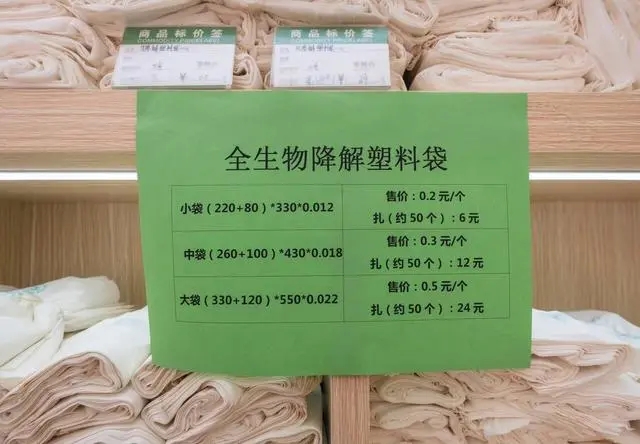 商品标价签
COMMODITY PRICE LABEL
商品标价签
COMMODITY PRICE LABEL
全生物降解塑料袋
小袋（220+80）*330*0.012
售价：0.2 元/个
扎（约 50 个）：6 元
中袋（260+100）*430*0.018
售价：0.3 元/个
扎（约 50 个）：12 元
大袋（330+120）*550*0.022
售价：0.5 元/个
扎（约 50 个）：24 元